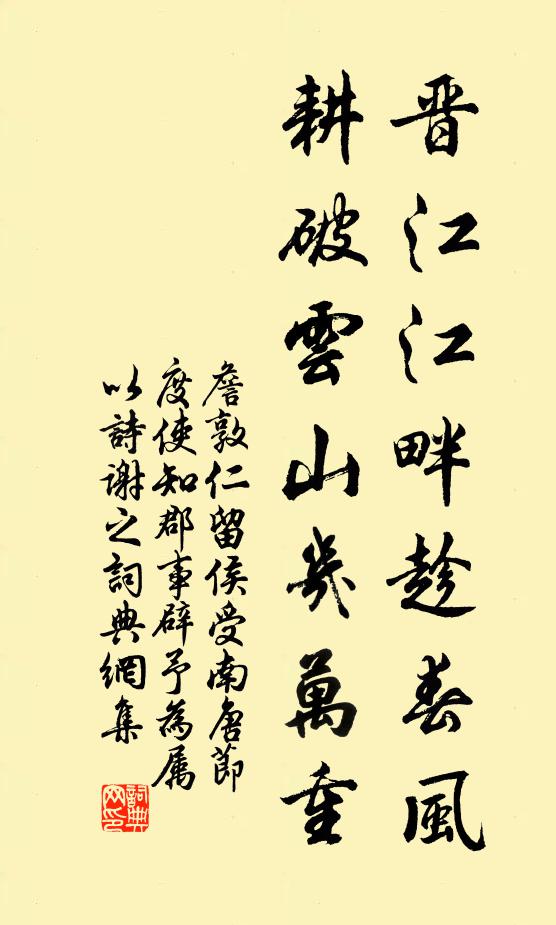 晋江江畔趁春風
耕破雲山幾萬重
詹敦仁留侯受南唐節
度使知郡事辟予為属
以詩謝之詞典網集
詞典
网印